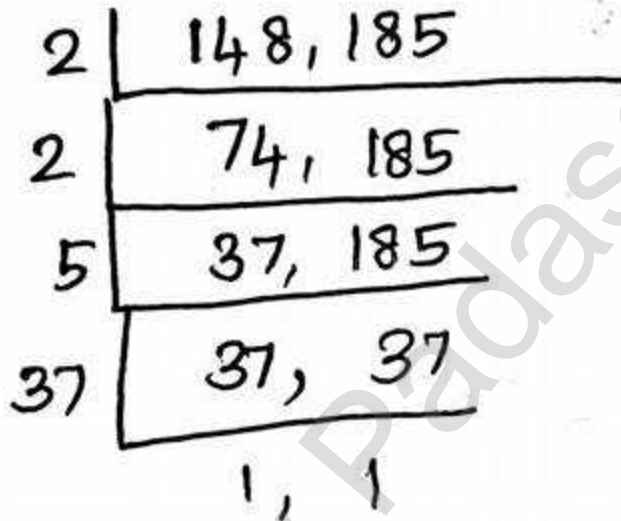 2 148, 185
2 74, 185
5 37, 185
37 37, 37
1, 1
Padas